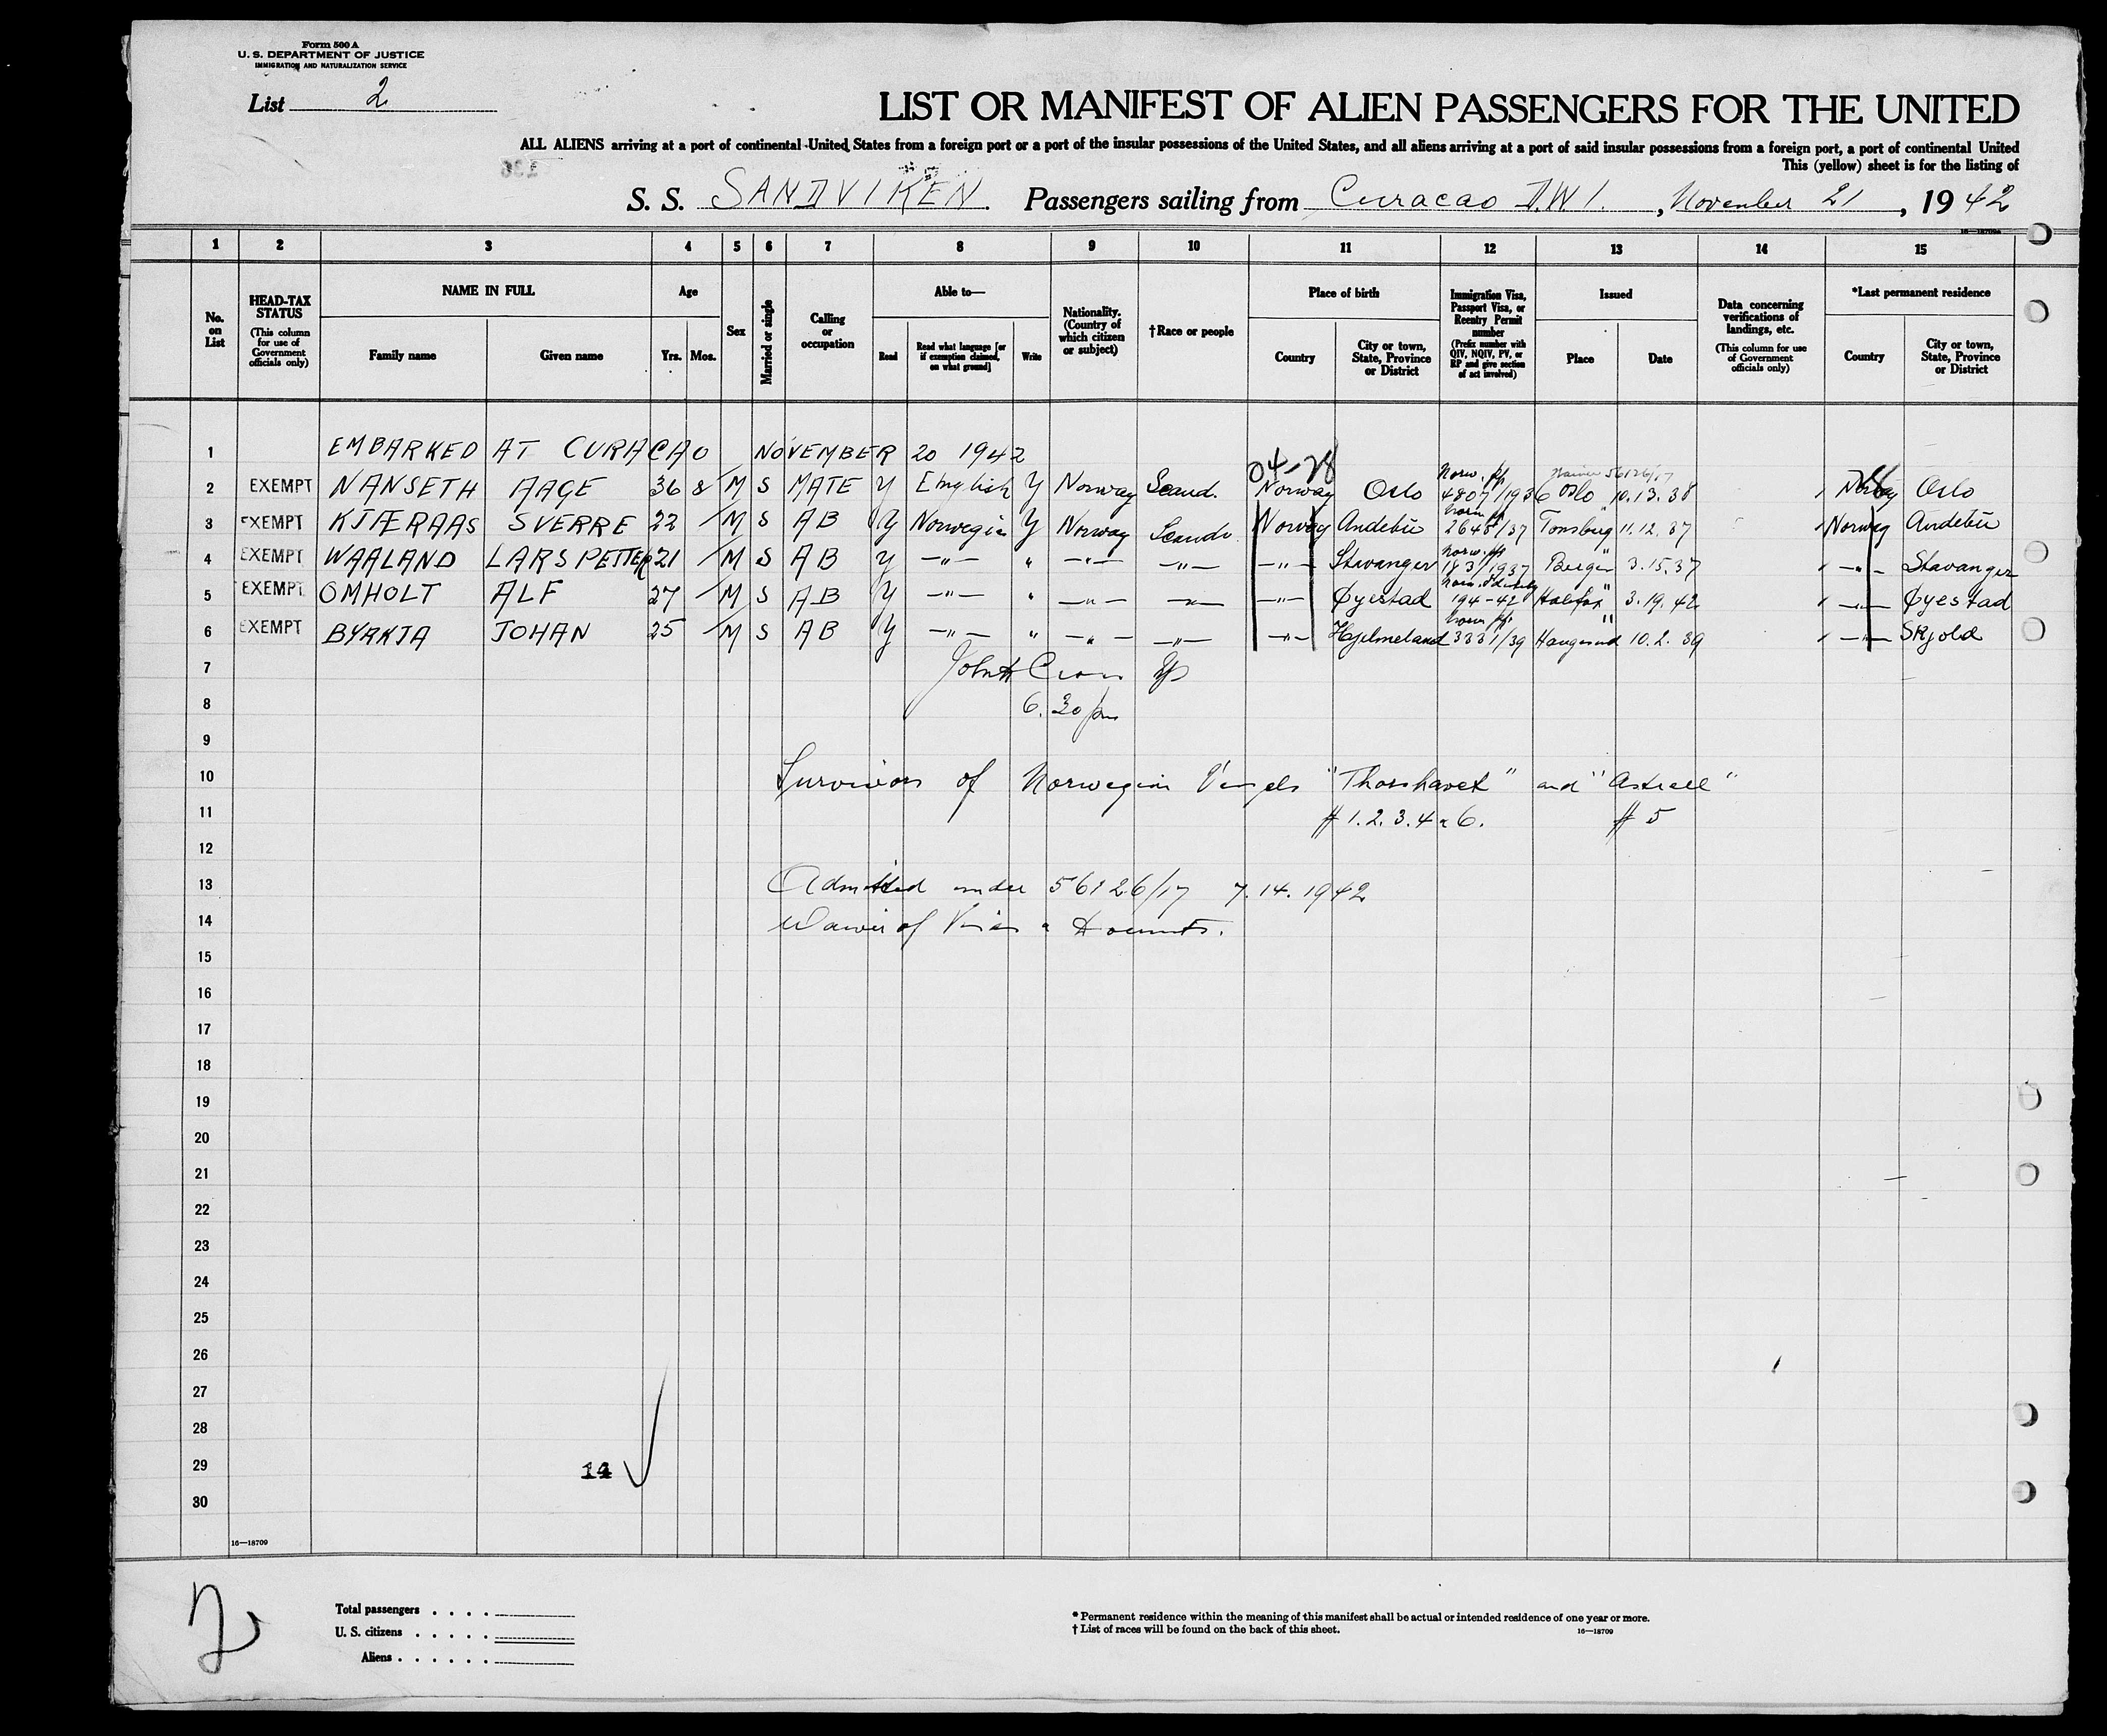 Form 500 A
U. S. DEPARTMENT OF JUSTICE
IMMIGRATION AND NATURALIZATION SERVICE
List 2
LIST OR MANIFEST OF ALIEN PASSENGERS FOR THE UNITED
ALL ALIENS arriving at a port of continental United States from a foreign port or a port of the insular possessions of the United States, and all aliens arriving at a port of said insular possessions from a foreign port, a port of continental United
This (yellow) sheet is for the listing of
S. S. SANDVIKEN Passengers sailing from Curacao D.W.I., November 21, 1942
1 2 3 4 5 6 7 8 9 10 11 12 13 14 15
No. on List
HEAD-TAX STATUS (This column for use of Government officials only)
NAME IN FULL Family name Given name
Age Yrs. Mos.
Sex
Married or single
Calling or occupation
Able to— Read Read what language [or if exemption claimed, on what ground] Write
Nationality. (Country of which citizen or subject)
†Race or people
Place of birth Country City or town, State, Province or District
Immigration Visa, Passport Visa, or Reentry Permit number (Prefix number with QIV, NQIV, PV, or RP and give section of act involved)
Issued Place Date
Data concerning verifications of landings, etc. (This column for use of Government officials only)
*Last permanent residence Country City or town, State, Province or District
1 EMBARKED AT CURACAO NOVEMBER 20 1942
2 EXEMPT NANSETH AAGE 36 8 M S MATE Y English Y Norway Scand. Norway Oslo Norw. pp 4807/1936 Oslo 10.13.38 Norway Oslo
3 EXEMPT KJÆRAAS SVERRE 22 M S AB Y Norwegian Y Norway Scand. Norway Andebu Norw pp 2645/37 Tonsberg 11.12.37 Norway Andebu
4 EXEMPT WAALAND LARS PETTER 21 M S AB Y —"— " —"— —"— —"— Stavanger Norw. pp 183/1937 Bergen 3.15.37 —"— Stavanger
5 EXEMPT OMHOLT ALF 27 M S AB Y —"— " —"— —"— —"— Øyestad Norw. Identity 194-42 Halifax 3.19.42 —"— Øyestad
6 EXEMPT BYRKJA JOHAN 25 M S AB Y —"— " —"— —"— —"— Hjelmeland Norw pp 3331/39 Haugesund 10.2.39 —"— Skjold
7 John
8 6.30 pm
9
10 Survivors of Norwegian Vessels "Thorshavet" and "Astrell"
11 # 1.2.3.4 & 6. # 5
12
13 Admitted under 56126/17 7.14.1942
14 Waiver of Visas & Documents.
15
16
17
18
19
20
21
22
23
24
25
26
27
28
29 14
30
16—18709
2
Total passengers . . . .
U. S. citizens . . . . .
Aliens . . . . . .
* Permanent residence within the meaning of this manifest shall be actual or intended residence of one year or more.
† List of races will be found on the back of this sheet. 16—18709